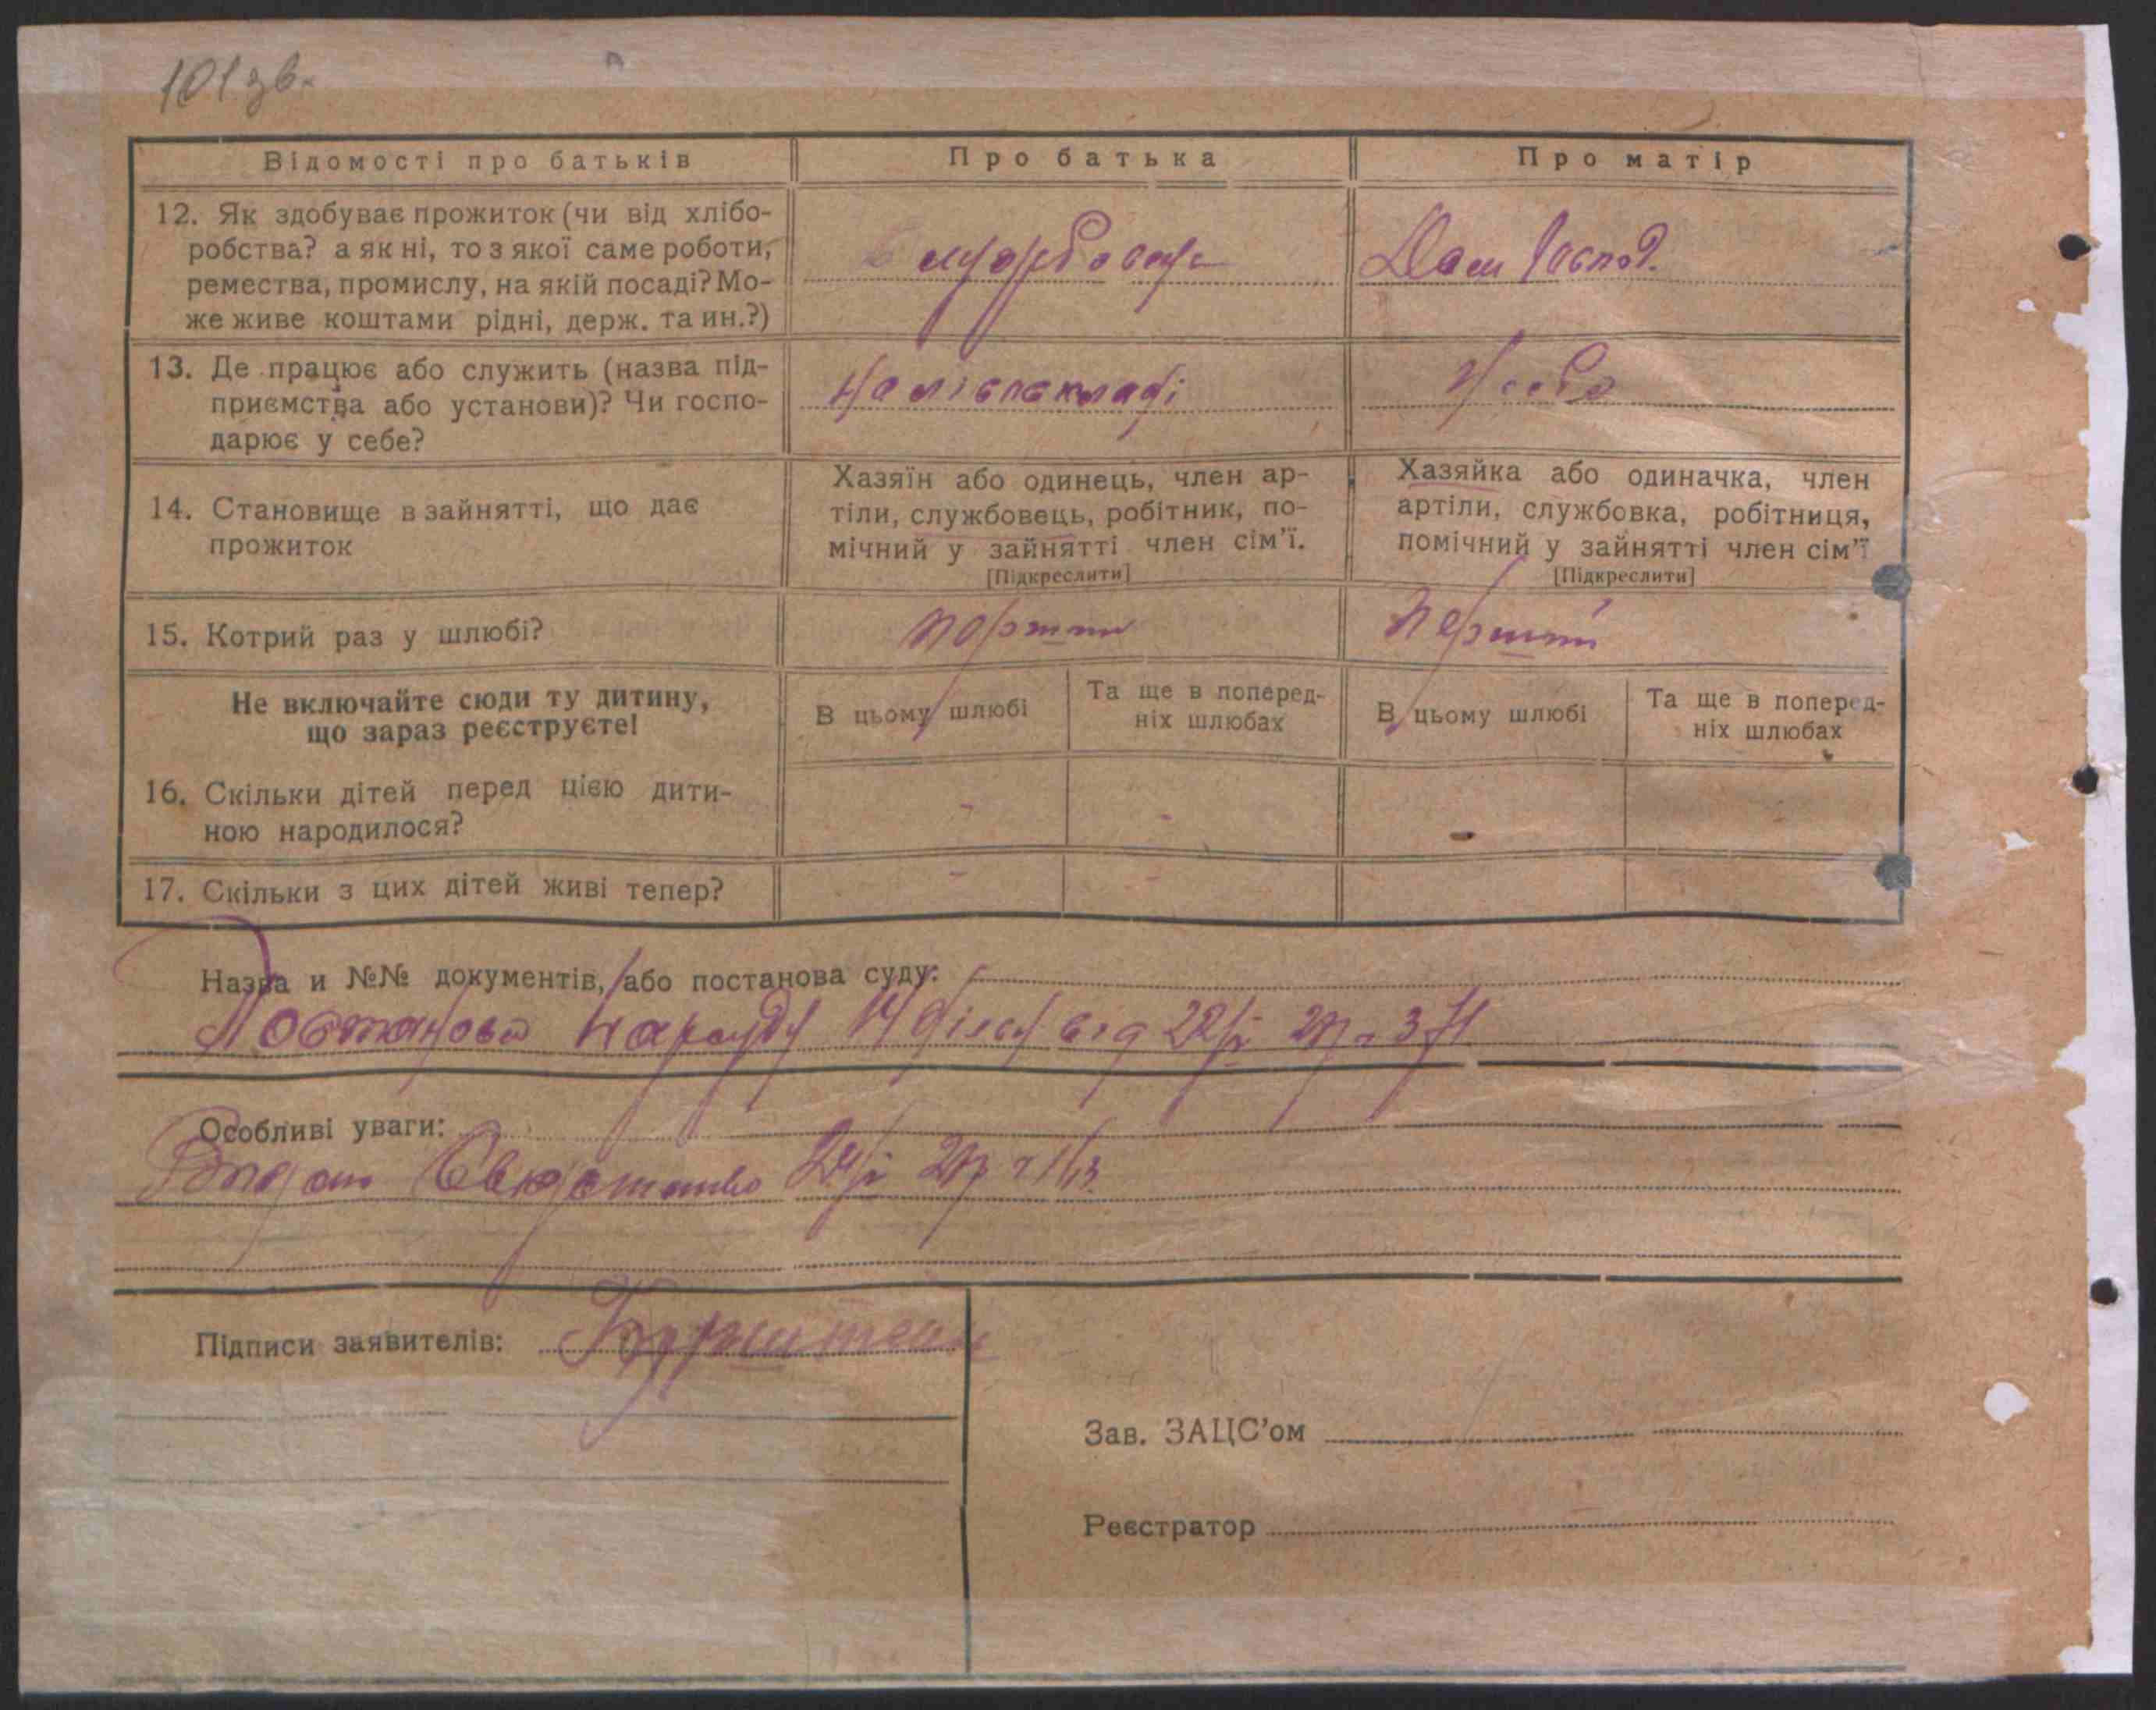 101 зв.
Відомості про батьків
Про батька
Про матір
12. Як здобуває прожиток (чи від хлібо-
робства? а як ні, то з якої саме роботи,
ремества, промислу, на якій посаді? Мо-
же живе коштами рідні, держ. та ин.?)
Дом господ.
13. Де працює або служить (назва під-
приємства або установи)? Чи госпо-
дарює у себе?
На лісоскладі
14. Становище в зайнятті, що дає
прожиток
Хазяїн або одинець, член ар-
тіли, службовець, робітник, по-
мічний у зайнятті член сім'ї.
[Підкреслити]
Хазяйка або одиначка, член
артіли, службовка, робітниця,
помічний у зайнятті член сім'ї
[Підкреслити]
15. Котрий раз у шлюбі?
перший
перший
Не включайте сюди ту дитину,
що зараз реєструєте!
В цьому шлюбі
Та ще в поперед-
ніх шлюбах
В цьому шлюбі
Та ще в поперед-
ніх шлюбах
16. Скільки дітей перед цією дити-
ною народилося?
- - -
17. Скільки з цих дітей живі тепер?
- -
Назва и №№ документів, або постанова суду:
Постанова Нарсуду 14 дільн від
Особливі уваги:
Видан Свидоцтво
Підписи заявителів:
Зав. ЗАЦС'ом
Реєстратор